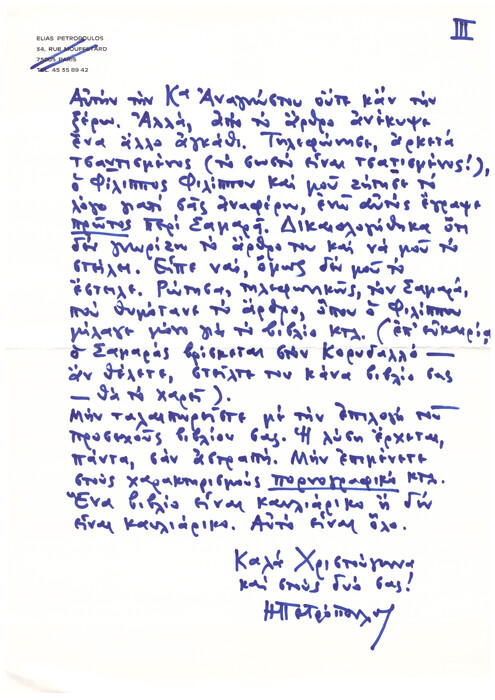 III
ELIAS PETROPOULOS
34, RUE MOUFFETARD
75005 PARIS
TÉL. 45 35 89 42
Αὐτὴν τὴν Κα Ἀναγνώστου οὔτε κἂν τὴν
ξέρω. Ἀλλά, ἀπὸ τὸ ἄρθρο ἀνέκυψε
ἕνα ἄλλο ἀγκάθι. Τηλεφώνησε, ἀρκετὰ
τσαντισμένος (τὸ σωστὸ εἶναι τσατισμένος!),
ὁ Φίλιππος Φιλίππου καὶ μοῦ ζήτησε τὸ
λόγο γιατί σᾶς ἀναφέρω, ἐνῶ αὐτὸς ἔγραψε
πρῶτος περὶ Σαμαρᾶ. Δικαιολογήθηκα ὅτι
δὲν γνωρίζω τὸ ἄρθρο του καὶ νὰ μοῦ τὸ
στείλει. Εἶπε ναί, ὅμως δὲν μοῦ τὸ
ἔστειλε. Ρώτησα, τηλεφωνικῶς, τὸν Σαμαρᾶ,
ποὺ θυμότανε τὸ ἄρθρο, ὅπου ὁ Φιλίππου
μίλαγε μόνο γιὰ τὸ βιβλίο κτλ. (ἐπ' εὐκαιρία,
ὁ Σαμαρᾶς βρίσκεται στὸν Κορυδαλλὸ —
ἂν θέλετε, στεῖλτε του κάνα βιβλίο σας
— θὰ τὸ χαρεῖ).
Μὴν ταλαιπωρεῖστε μὲ τὴν ἐπιλογὴ τοῦ
προσεχοῦς βιβλίου σας. Ἡ λύση ἔρχεται,
πάντα, σὰν ἀστραπή. Μὴν ἐπιμένετε
στοὺς χαρακτηρισμοὺς πορνογραφικὸ κτλ.
Ἕνα βιβλίο εἶναι καυλιάρικο ἢ δὲν
εἶναι καυλιάρικο. Αὐτὸ εἶναι ὅλο.
Καλὰ Χριστούγεννα
καὶ στοὺς δυό σας!
ΗΠετρόπουλος